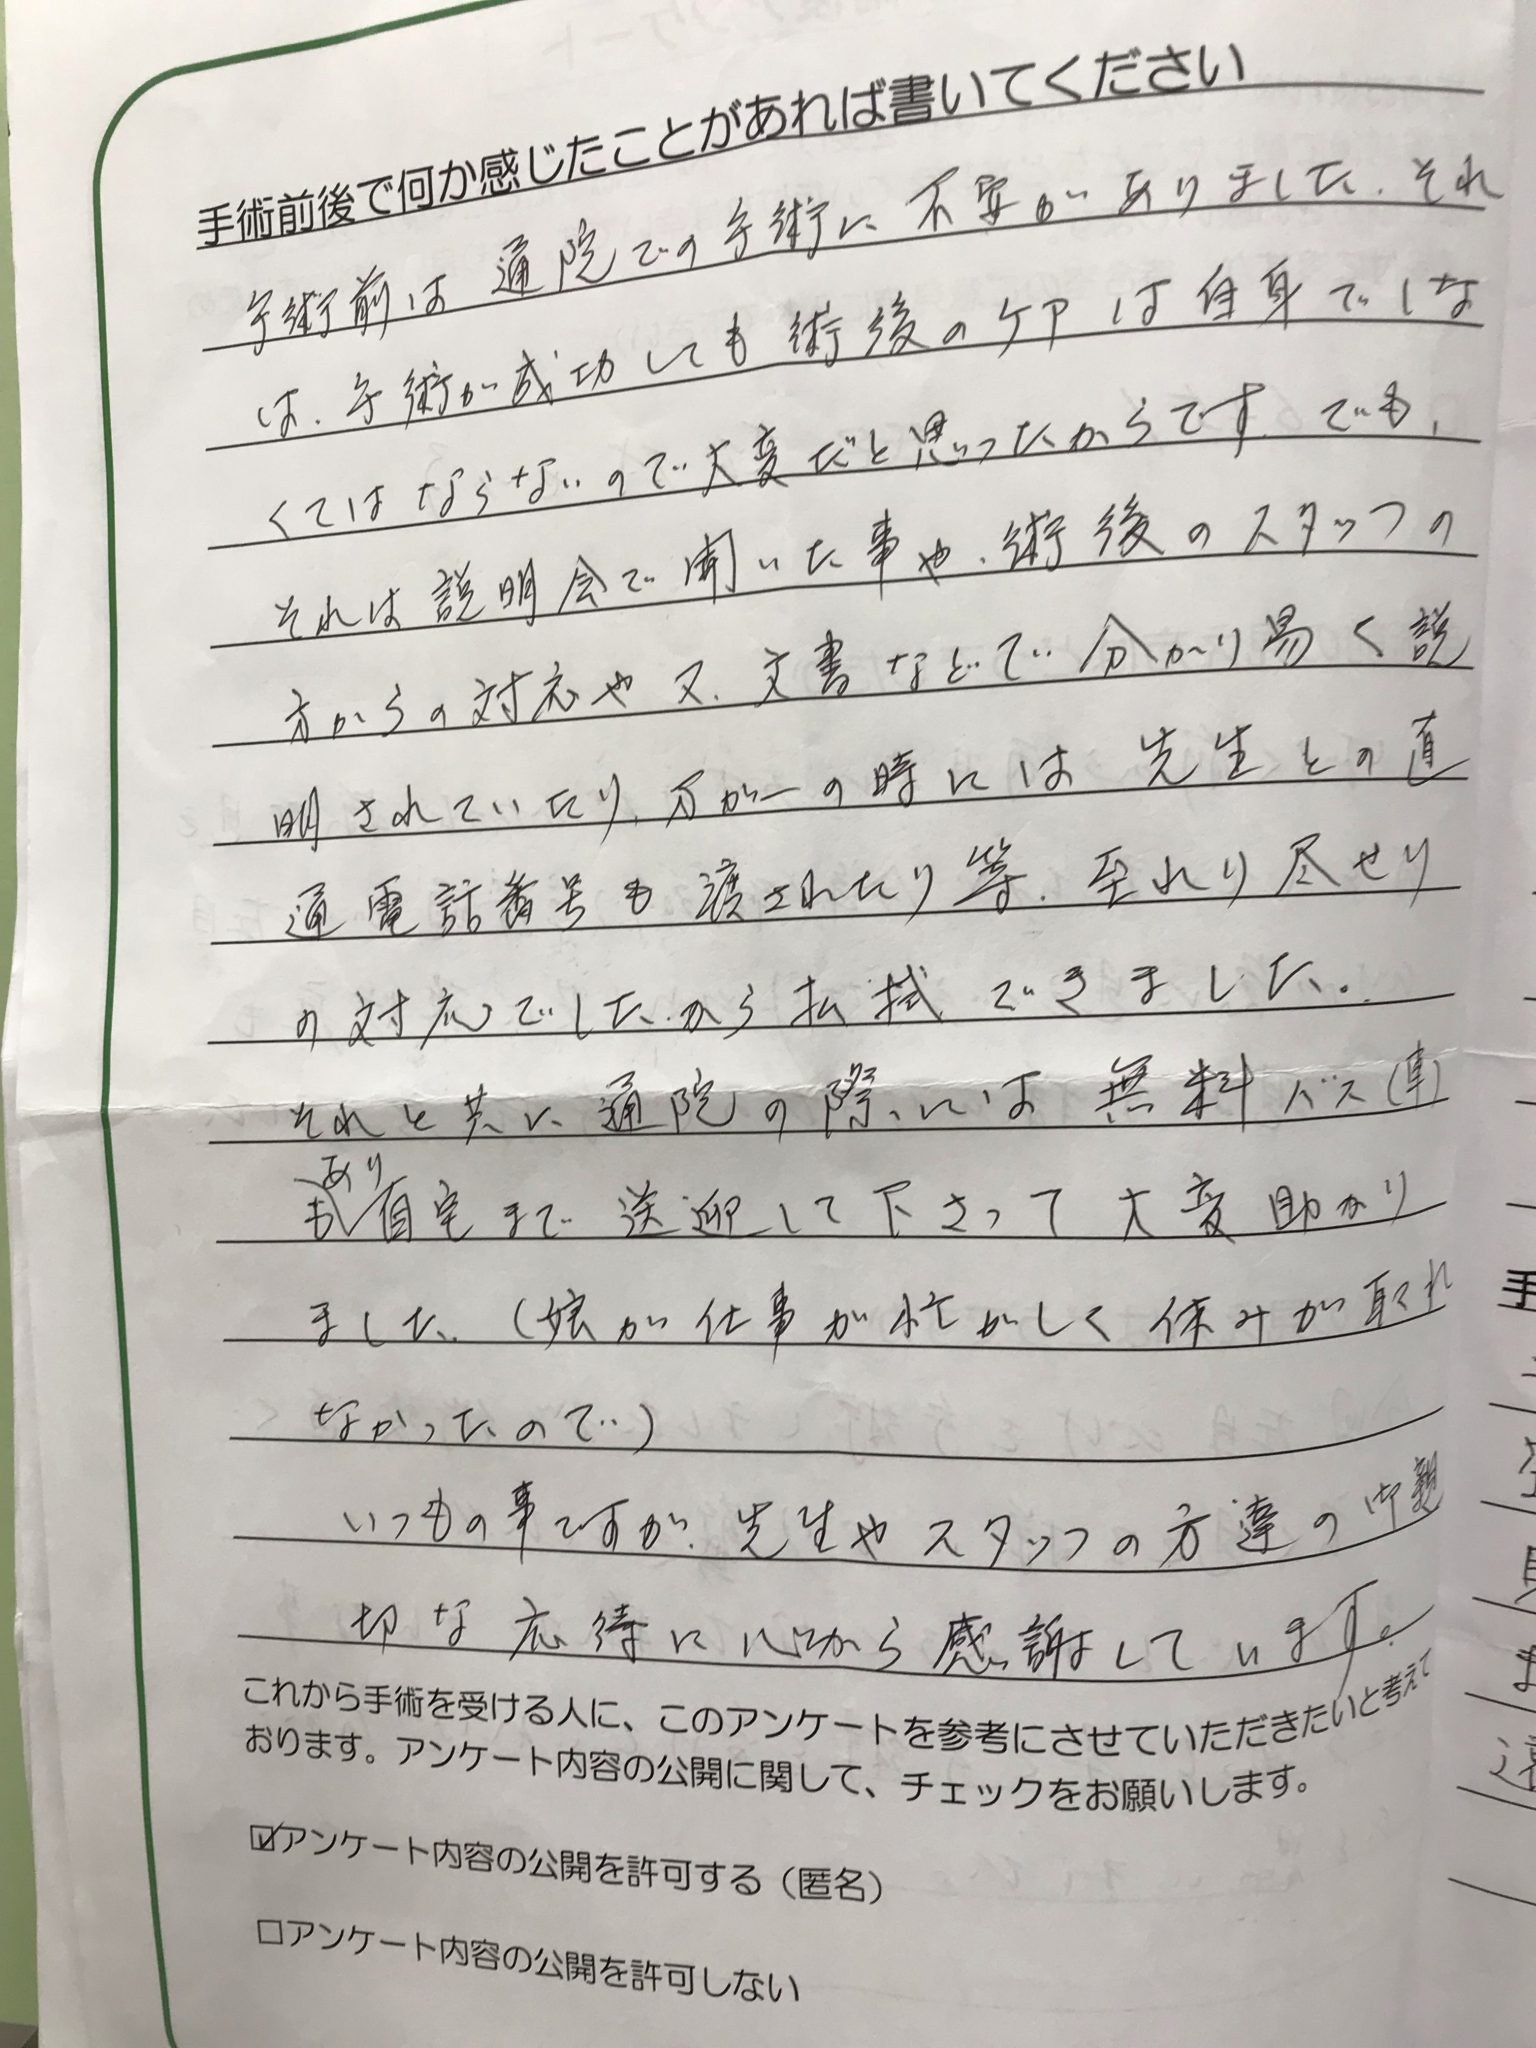 手術前後で何か感じたことがあれば書いてください
手術前は通院での手術に不安がありました.それ
は、手術が成功しても術後のケアは自身でしな
くてはならないので大変だと思ったからです。でも、
それは説明会で聞いた事や、術後のスタッフの
方からの対応や又、文書などで分かり易く説
明されていたり、万が一の時には先生との直
通電話番号も渡されたり等、至れり尽せり
の対応でしたから払拭できました。
それと共に通院の際には無料バス(車)
もあり自宅まで送迎して下さって大変助かり
ました。(娘が仕事が忙がしく休みが取れ
なかったので)
いつもの事ですが、先生やスタッフの方達の御親
切な応待に心から感謝しています。
これから手術を受ける人に、このアンケートを参考にさせていただきたいと考えて
おります。アンケート内容の公開に関して、チェックをお願いします。
☑アンケート内容の公開を許可する(匿名)
□アンケート内容の公開を許可しない